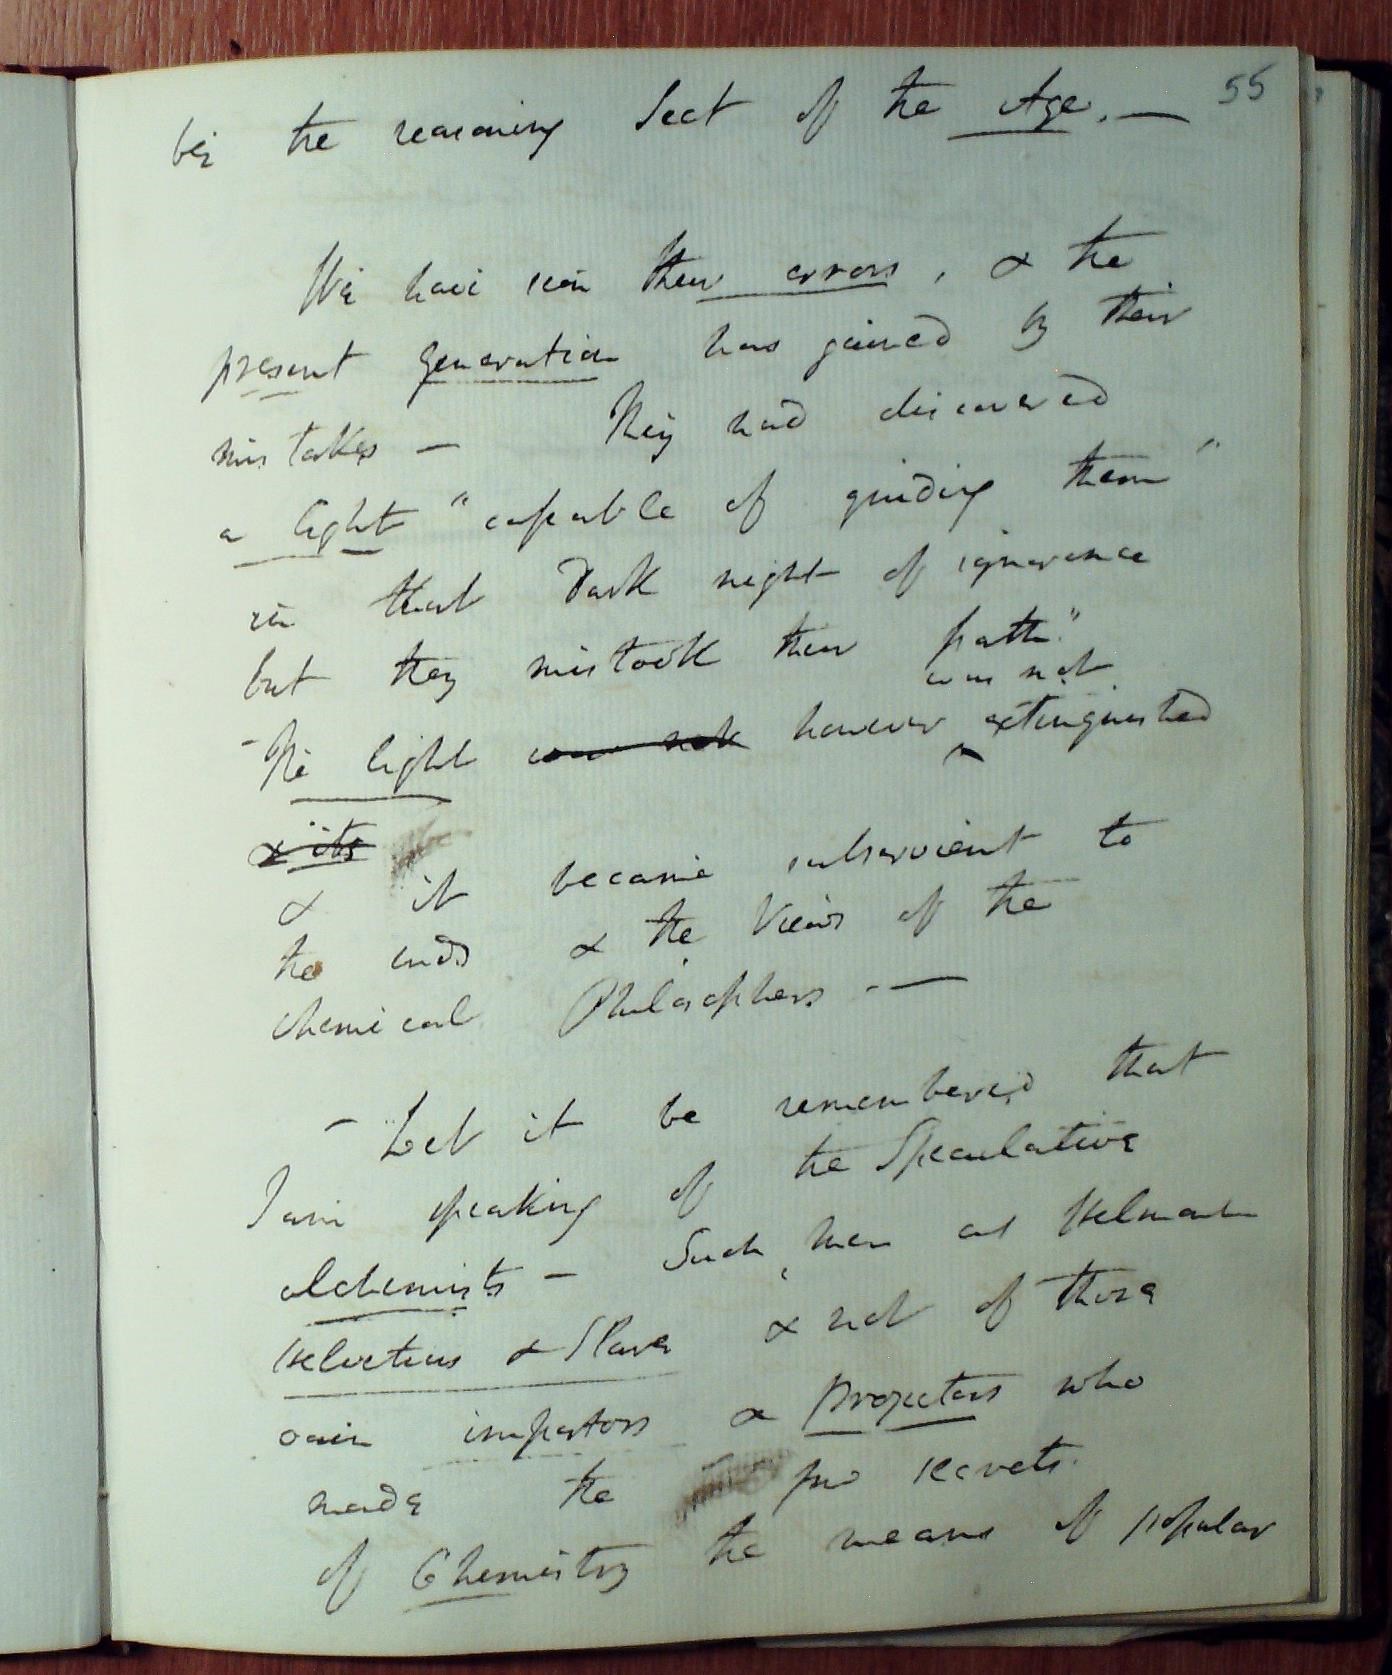 55
by the reasoning Sect of the Age. —
We have seen their errors, & the
present generation has gained by their
mistakes — They had discovered
a light "capable of guiding them"
in that Dark night of ignorance
but they mistook their path."
was not
- The light was not however ^ extinguished
& its
& it became subservient to
the ends & the Views of the
Chemical Philosophers. —
- Let it be remembered that
I am speaking of the Speculative
alchemists — Such men as Helmont
Helvetius & Slare & not of those
vain impostors & Projectors who
made the few secrets.
of Chemistry the means of popular